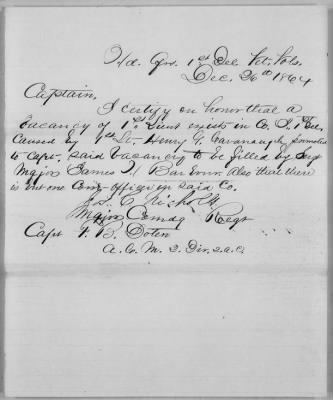 Hd. Qrs. 1st Del. Vet. Vols.
Dec. 26th 1864
Captain,
I certify on honor that a
vacancy of 1st Lieut exists in Co. I. 1st Del.
Caused by 1st Lt. Henry G. Cavanaugh promoted
to Capt. said vacancy to be filled by Sergt
Major James Barton. Also that there
is but one Com. officer in said Co.
Nicholls
Major Comdg Regt
Capt F. B. Doten
A. C. M. 2. Div. 2. A. C.